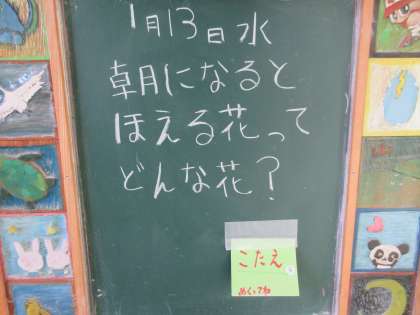 1月13日水
朝になると
ほえる花って
どんな花?
こたえ
めくってね